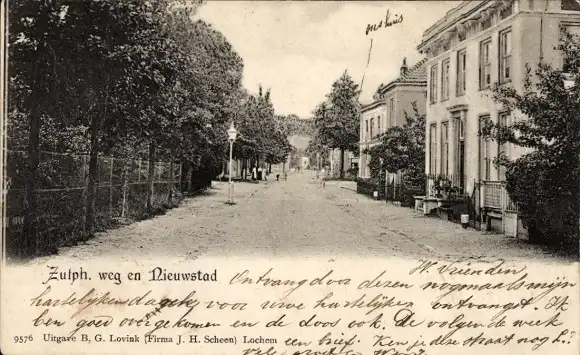 ons huis
Zutph. weg en Nieuwstad
W. Vrienden
Ontvang door dezen nogmaals mijn
hartelijken dank voor uwe hartelijke ontvangst. Ik
ben goed overgekomen en de doos ook. De volgende week
een brief. Ken je deze straat nog?
9576 Uitgave B. G. Lovink (Firma J. H. Scheen) Lochem
vele groeten